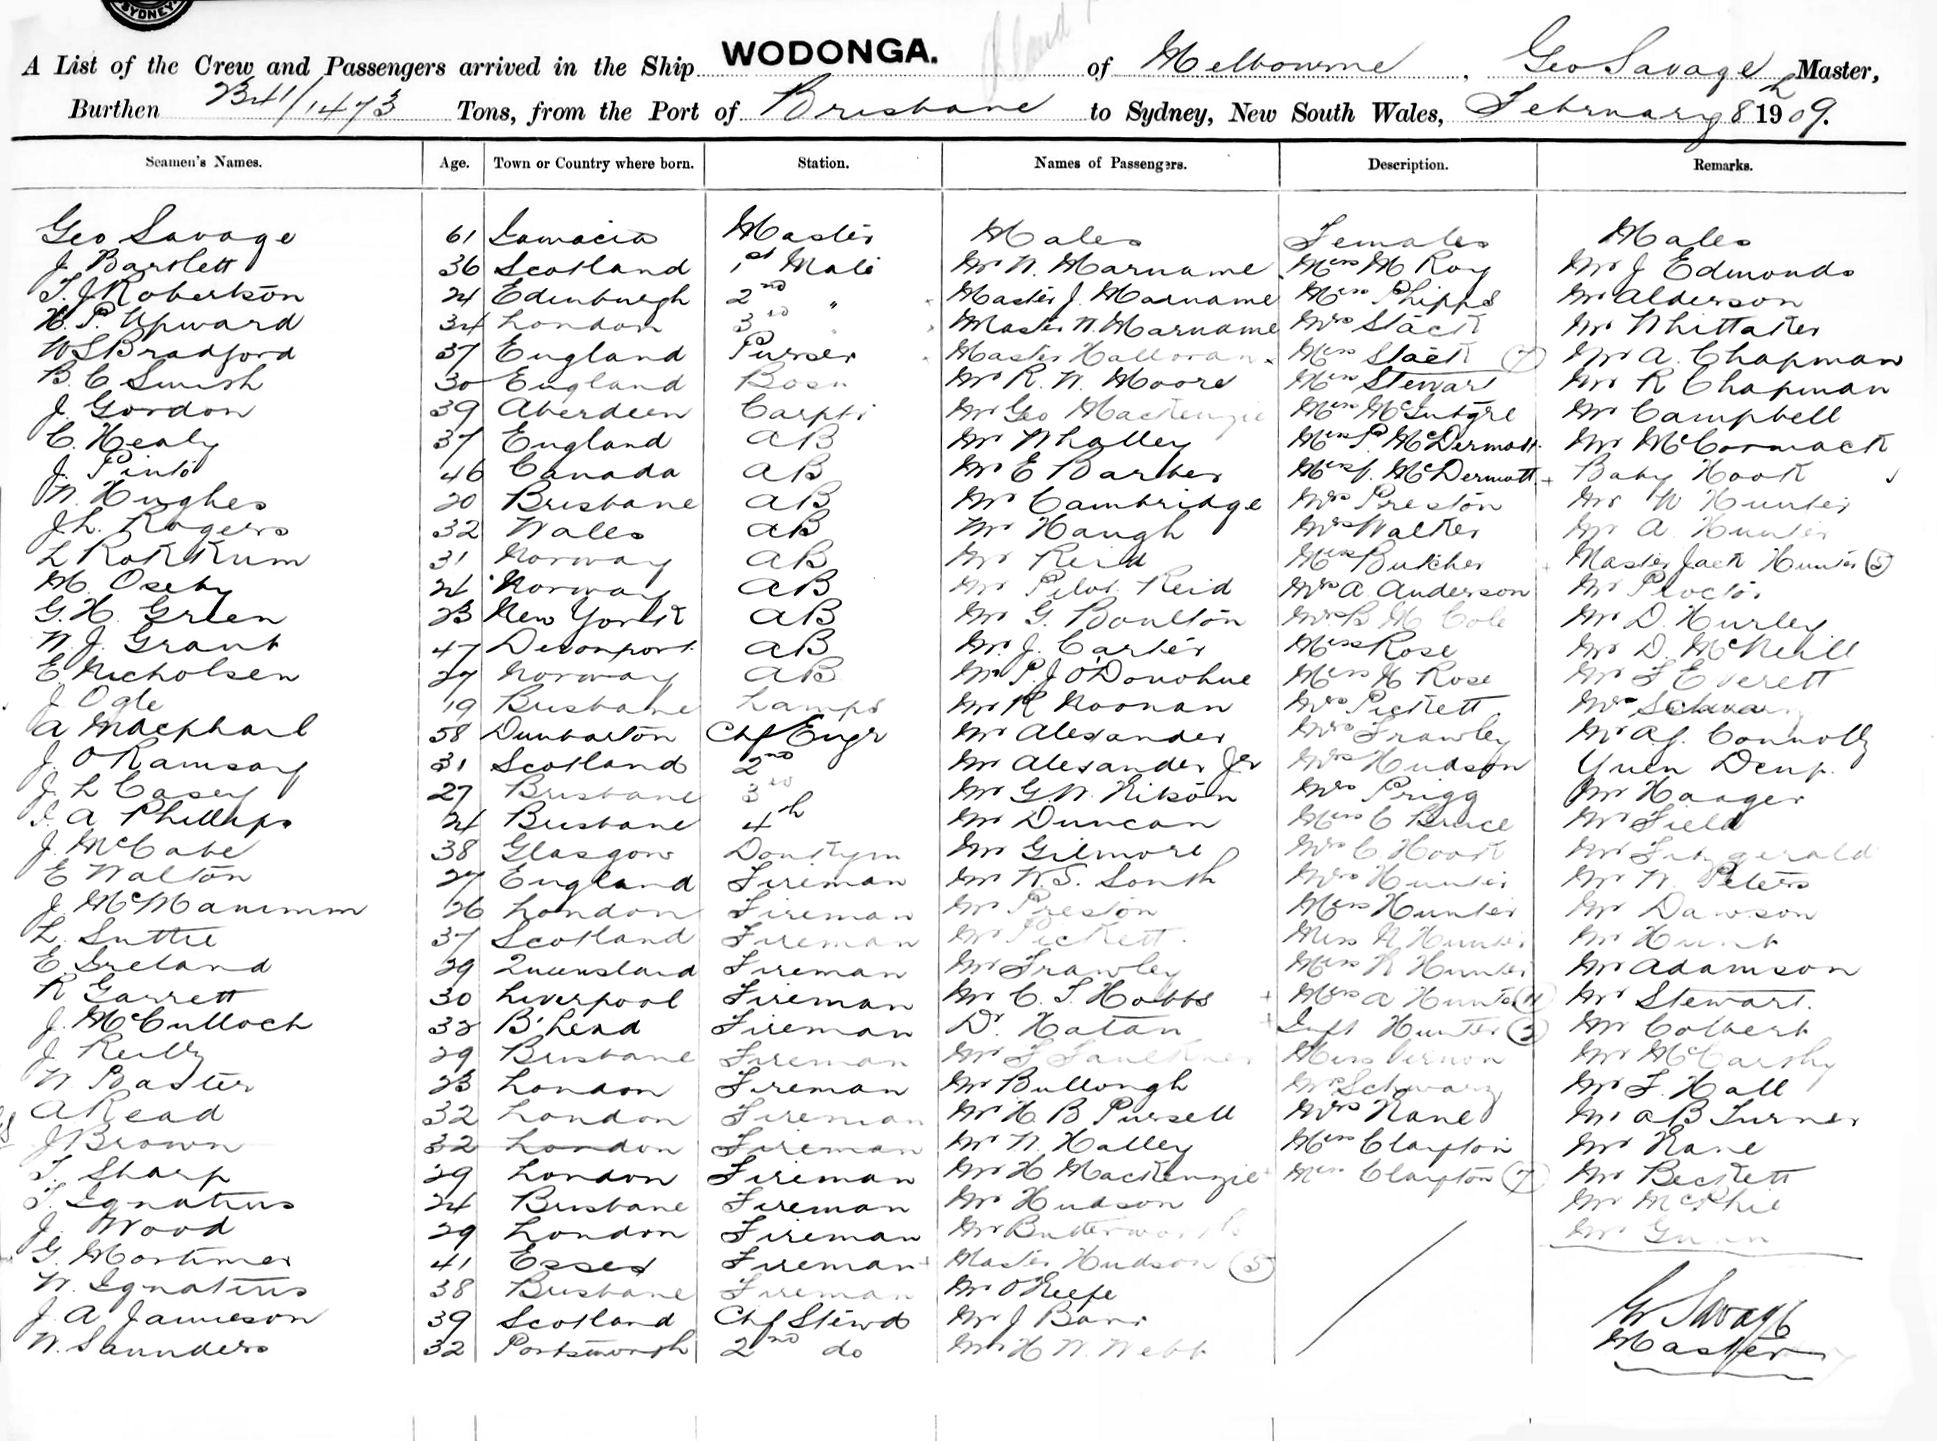 SYDNEY
A List of the Crew and Passengers arrived in the Ship WODONGA. of Melbourne, Geo Savage Master,
Burthen 2341/1473 Tons, from the Port of Brisbane to Sydney, New South Wales, February 8th 1909.
Seamen's Names. Age. Town or Country where born. Station. Names of Passengers. Description. Remarks.
Geo Savage 61 Jamacia Master Males Females Males
J. Bartlett 36 Scotland 1st Mate Mr W. Marname Miss M Roy Mr J Edmonds
T. J Robertson 24 Edinburgh 2nd " Master J. Marname Miss Phipps Mr Alderson
H. P. Upward 34 London 3rd " Master W. Marname Mrs Stack Mr Whittaker
W S Bradford 37 England Purser Master Halloran Miss Stack (7) Mr A. Chapman
B. C Smish 30 England Bosn Mr R. W. Moore Miss Stewart Mr R Chapman
J. Gordon 39 Aberdeen Carptr Mr Geo Mackenzie Miss McIntyre Mr Campbell
C. Healy 37 England AB Mr Whalley Miss P. McDermott Mr McCormack
J. Pinto 46 Canada AB Mr E Barber Miss J. McDermott Baby Hook
W. Hughes 20 Brisbane AB Mr Cambridge Mrs Preston Mr W Hunter
J. L. Rogers 32 Wales AB Mr Haugh Mrs Walker Mr A. Hunter
L Rokkum 31 Norway AB Mr Reid Miss Butcher Master Jack Hunter (5)
M. Oseby 24 Norway AB Mr Pilot Reid Mrs A Anderson Mr Proctor
G. H. Green 23 New York AB Mr G. Boulton Mrs B M Cole Mr D. Hurley
W. J. Grant 47 Devonport AB Mr J. Carter Miss Rose Mr D. McNeill
E. Nicholsen 27 Norway AB Mr P. J O'Donohue Miss H Rose Mr F Everett
J Ogle 19 Brisbane Lamps Mr R Noonan Mrs Pickett Mr Schwarz
A Macphail 58 Dunbarton Chf Engr Mr Alexander Mrs Frawley Mr A J. Connolly
J. O Ramsay 31 Scotland 2nd Mr Alexander Jr Mrs Hudson Yuen Deup.
J. L Casey 27 Brisbane 3rd Mr G W. Nilson Mrs Prigg Mr Haager
A Phillips 24 Brisbane 4th Mr Duncan Miss C Bruce Mr Field
J. McCabe 38 Glasgow Donkym Mr Gilmore Mrs C Hook Mr Fitzgerald
E Walton 27 England Fireman Mr W. S. South Mrs Hunter Mr W. Peters
J. McManimm 26 London Fireman Mr Preston Miss Hunter Mr Dawson
L. Suttie 37 Scotland Fireman Mr Pickett Miss N Hunter Mr Hunt
E Ireland 29 Queensland Fireman Mr Frawley Miss R Hunter Mr Adamson
R Garrett 30 Liverpool Fireman Mr C. F. Hobbs Miss A Hunter (11) Mr Stewart.
J. McCulloch 38 B'head Fireman Dr Hatan Inft Hunter (3) Mr Colbert
J Reilly 29 Brisbane Fireman Mr F Faulkner Miss Vernon Mr McCarthy
W Baxter 23 London Fireman Mr Bullough Mrs Schwarz Mr F. Hall
A Read 32 London Fireman Mr H. B Pursell Mrs Nane Mr A B Turner
J Brown 32 London Fireman Mr W. Halley Miss Clayton Mr Nane
T. Sharp 29 London Fireman Mr H Mackenzie Miss Clayton (7) Mr Beckett
T Ignatius 24 Brisbane Fireman Mr Hudson Mr McPhie
J. Wood 29 London Fireman Mr Butterworth Mr Gunn
G. Mortimer 41 Essex Fireman Master Hudson (5)
W. Ignatius 38 Brisbane Fireman Mr O'Keefe
J. A Jamieson 39 Scotland Chf Stewd Mr J Barr G Savage
W. Saunders 32 Portsmouth 2nd do Mr H W. Webb Master